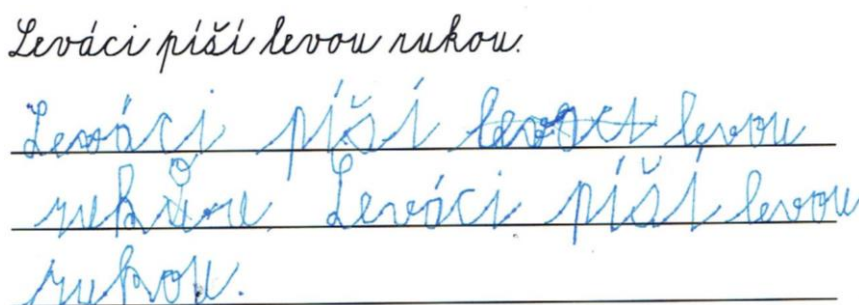 Leváci píší levou rukou.
Leváci píší levou
Leváci píší levou
rukou.